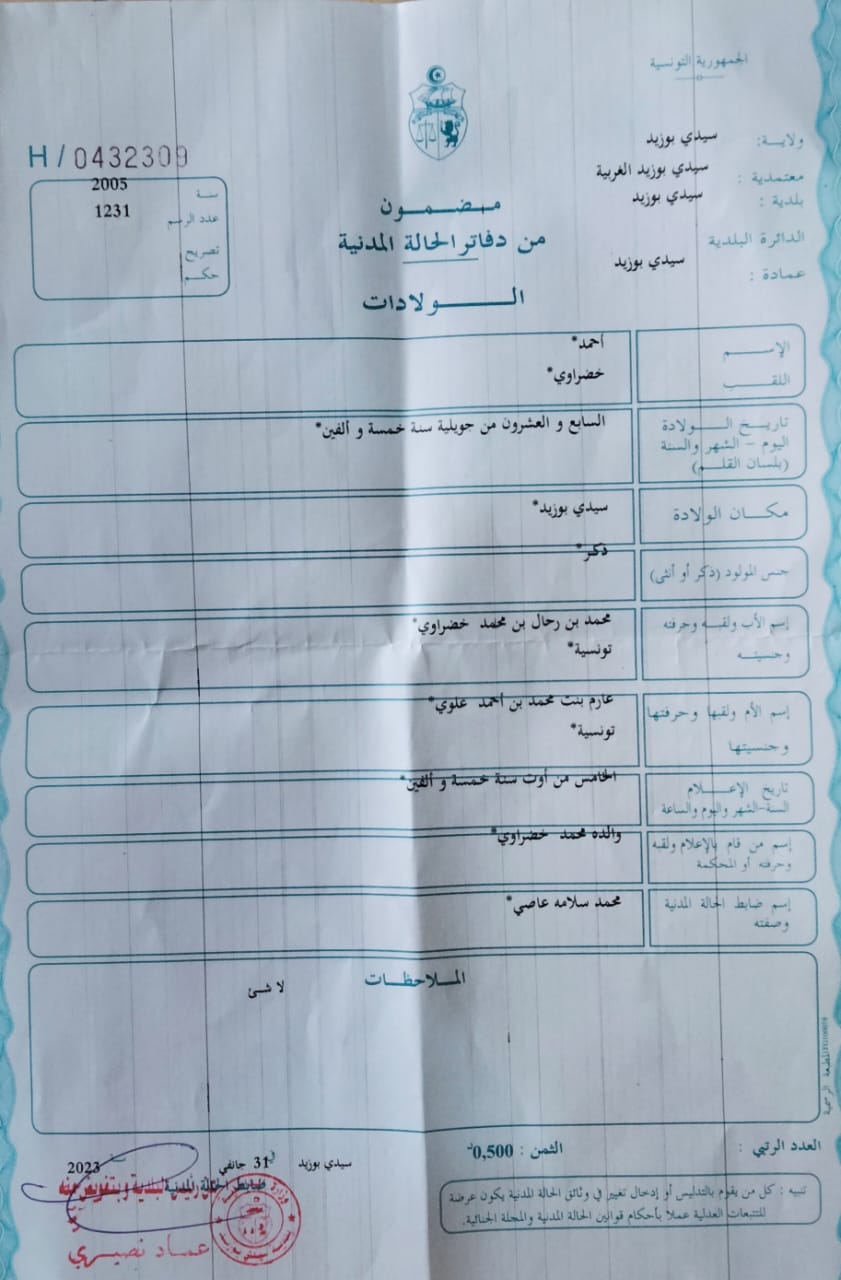 الجمهورية التونسية
ولاية: سيدي بوزيد
معتمدية : سيدي بوزيد الغربية
بلدية : سيدي بوزيد
الدائرة البلدية
عمادة : سيدي بوزيد
H / 0432309
سنة 2005
عدد الرسم 1231
تصريح
حكم
مضمون
من دفاتر الحالة المدنية
الولادات
الإسم أحمد*
اللقب خضراوي*
تاريخ الولادة
اليوم – الشهر والسنة
(بلسان القلم)
السابع و العشرون من جويلية سنة خمسة و ألفين*
مكان الولادة سيدي بوزيد*
جنس المولود (ذكر أو أنثى) ذكر*
إسم الأب ولقبه وحرفته
وجنسيته
محمد بن رحال بن محمد خضراوي*
تونسية*
إسم الأم ولقبها وحرفتها
وجنسيتها
عارم بنت محمد بن أحمد علوي*
تونسية*
تاريخ الإعلام
السنة-الشهر واليوم والساعة
الخامس من أوت سنة خمسة و ألفين*
إسم من قام بالإعلام ولقبه
وحرفته أو المحكمة
والده محمد خضراوي*
إسم ضابط الحالة المدنية
وصفته
محمد سلامه عاصي*
الملاحظات
لا شئ
المطبعة الرسمية
العدد الرتبي :
الثمن : 0,500د
سيدي بوزيد في 31 جانفي سنة 2023
ضابط الحالة المدنية
عماد نصيري
تنبيه : كل من يقوم بالتدليس أو إدخال تغيير في وثائق الحالة المدنية يكون عرضة
للتتبعات العدلية عملا بأحكام قوانين الحالة المدنية والمجلة الجنائية.